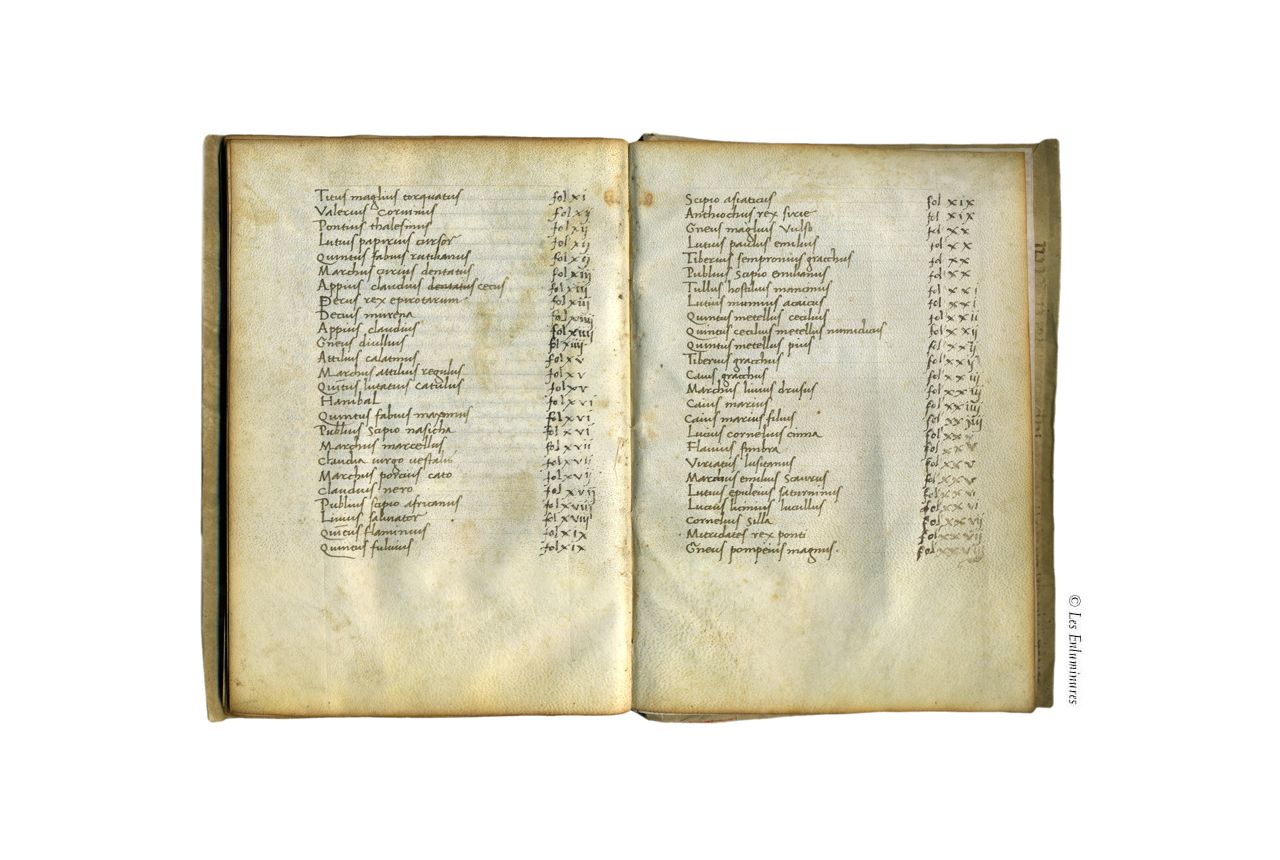 Titus maglius torquatus fol xi
Valerius Corvinus fol xij
Pontius thalesinus fol xij
Lutius papirius cursor fol xij
Quintus fabius rutilianus fol xij
Marchus curius dentatus fol xiij
Appius claudius dentatus cecus fol xiij
Decus rex epirotarum fol xiij
Decus murena fol xiiij
Appius claudius fol xiiij
Gneus diullius fol xiiij
Attilius calatinus fol xv
Marchus attilius regulus fol xv
Quitus lutatius catulus fol xv
Hanibal fol xvi
Quintus fabius maximus fol xvi
Publius Scipio nasicha fol xvi
Marchus marcellus fol xvii
Claudia virgo vestalis fol xvij
Marchus portius cato fol xvij
Claudius nero fol xvij
Publius scipio africanus fol xviij
Livius salinator fol xviij
Quitus flaminius fol xix
Quintus fulvius fol xix
Scipio asiaticus fol xix
Anthiochus rex sirie fol xix
Gneus maglius Vulso fol xx
Lutius paulus emilius fol xx
Tiberius sempronius gracchus fol xx
Publius Scipio emilianus fol xx
Tullus hostilius mancinus fol xxi
Lutius mumius acaicus fol xxi
Quintus metellus cecilius fol xxij
Quintus cecilius metellus numidicus fol xxij
Quintus metellus pius fol xxij
Tiberius gracchus fol xxij
Caius gracchus fol xxiij
Marchus livius drusus fol xxiij
Caius marius fol xxiiij
Caius marius filius fol xxiiij
Lucius cornelius cinna fol xxv
Flavius fimbra fol xxv
Viriatus lusitanus fol xxv
Marcius emilius Scaurus fol xxv
Lutius epuleius saturninus fol xxvi
Lucius licinius lucillus fol xxvi
Cornelius Silla fol xxvij
Mitridates rex ponti fol xxvij
Gneus pompeius magnus. fol xxviij
© Les Enluminures